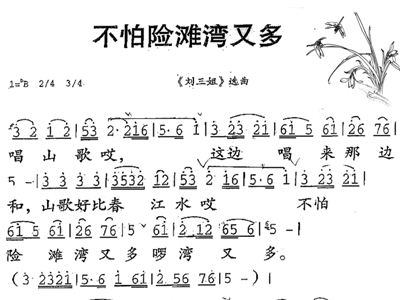 不怕险滩湾又多
1=ᵇB 2/4 3/4 《刘三姐》选曲
3 2 1 2 | 53 2·216 | 5·6 1 | 3 23 21 | 61 5 61 | 26 76 |
唱山歌哎, 这边唱来那边
5 - | 3 3 3 3 | 3532 12 | 53 2 16 | 5·6 1 | 3 23 21 |
和, 山歌好比春江水哎 不怕
61 5 61 | 26 76 | 5· 61 | 2 12 65 6 | 5 - |
险滩湾又多啰湾又多。
( 3 2321 | 5·16 1 61 | 2 35 216 | 5 - )